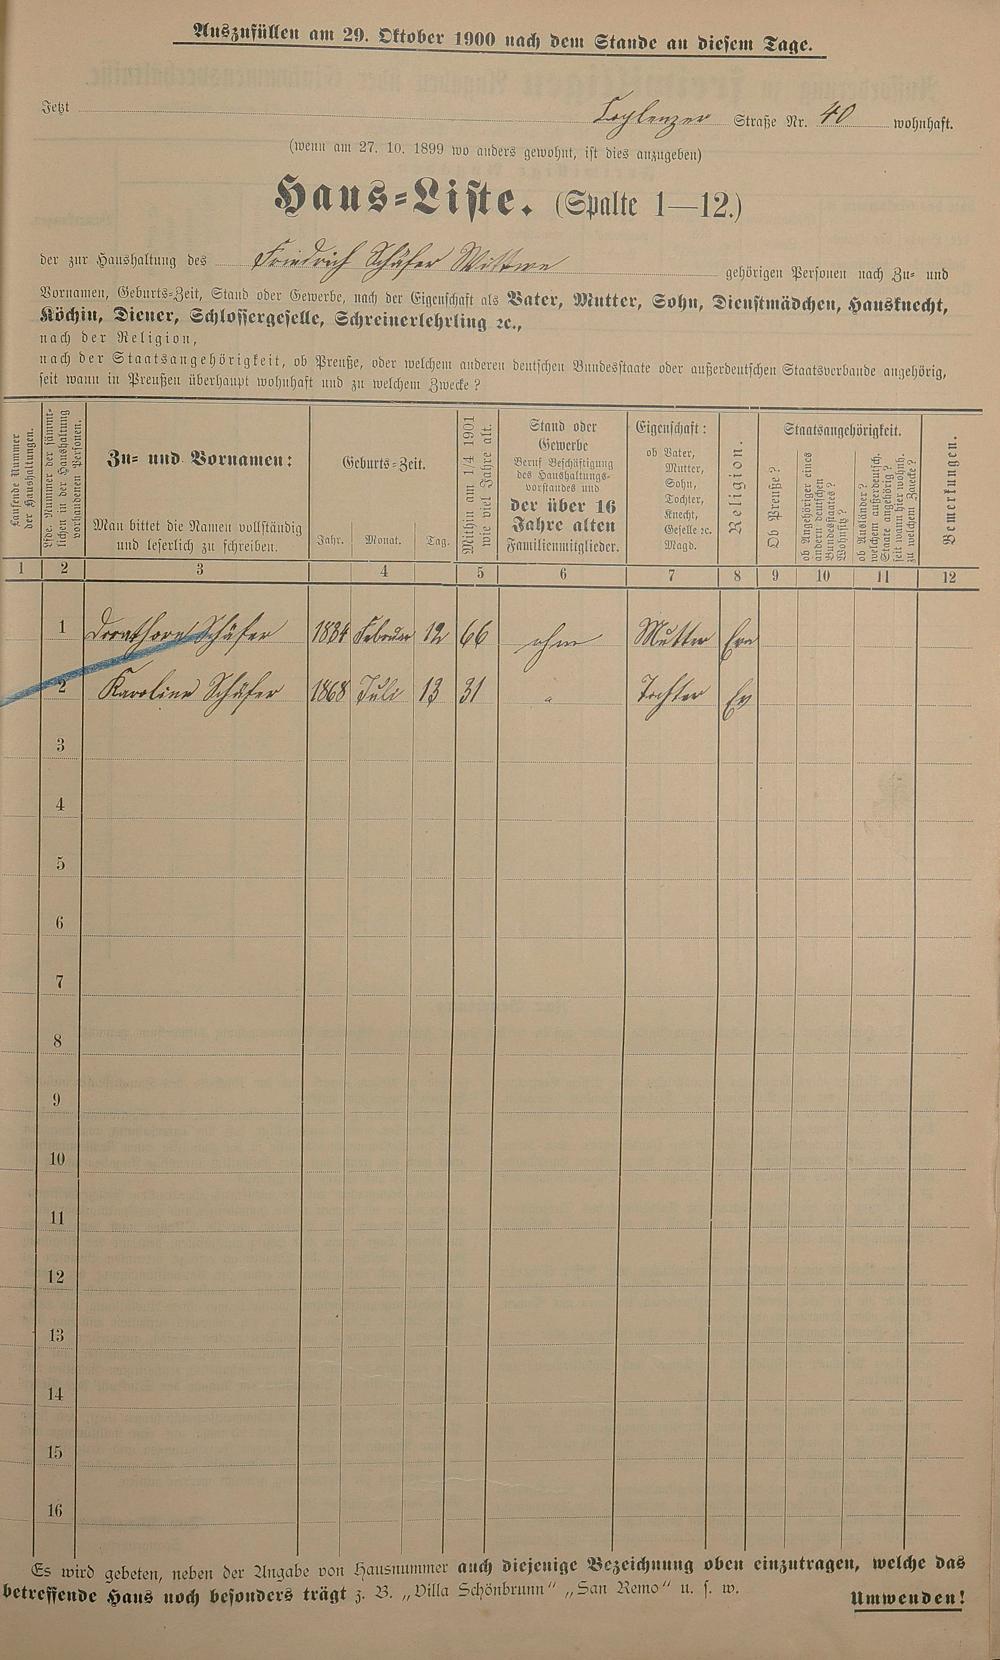 Auszufüllen am 29. Oktober 1900 nach dem Stande an diesem Tage.
Jetzt Coblenzer Straße Nr. 40 wohnhaft.
(wenn am 27. 10. 1899 wo anders gewohnt, ist dies anzugeben)
Haus-Liste. (Spalte 1—12.)
der zur Haushaltung des Friedrich Schäfer Wittwe gehörigen Personen nach Zu- und
Vornamen, Geburts-Zeit, Stand oder Gewerbe, nach der Eigenschaft als Vater, Mutter, Sohn, Dienstmädchen, Hausknecht,
Köchin, Diener, Schlossergeselle, Schreinerlehrling ꝛc.,
nach der Religion,
nach der Staatsangehörigkeit, ob Preuße, oder welchem anderen deutschen Bundesstaate oder außerdeutschen Staatsverbande angehörig,
seit wann in Preußen überhaupt wohnhaft und zu welchem Zwecke?
Laufende Nummer
der Haushaltungen.
Lfde. Nummer der sämmt-
lichen in der Haushaltung
vorhandenen Personen.
Zu- und Vornamen:
Man bittet die Namen vollständig
und leserlich zu schreiben.
Geburts-Zeit.
Jahr. Monat. Tag.
Mithin am 1/4 1901
wie viel Jahre alt.
Stand oder
Gewerbe
Beruf Beschäftigung
des Haushaltungs-
vorstandes und
der über 16
Jahre alten
Familienmitglieder.
Eigenschaft:
ob Vater,
Mutter,
Sohn,
Tochter,
Knecht,
Geselle ꝛc.
Magd.
Religion.
Staatsangehörigkeit.
Ob Preuße?
ob Angehöriger eines
andern deutschen
Bundesstaates?
Wohnsitz?
ob Ausländer?
welchem außerdeutsch.
Staate angehörig?
seit wann hier wohnh.
zu welchem Zwecke?
Bemerkungen.
1 2 3 4 5 6 7 8 9 10 11 12
1 Schäfer 1834 Februar 12 66 ohne Mutter Ev
2 Karoline Schäfer 1868 Juli 13 31 " Tochter Ev
3
4
5
6
7
8
9
10
11
12
13
14
15
16
Es wird gebeten, neben der Angabe von Hausnummer auch diejenige Bezeichnung oben einzutragen, welche das
betreffende Haus noch besonders trägt z. B. „Villa Schönbrunn“ „San Remo“ u. s. w. Umwenden!